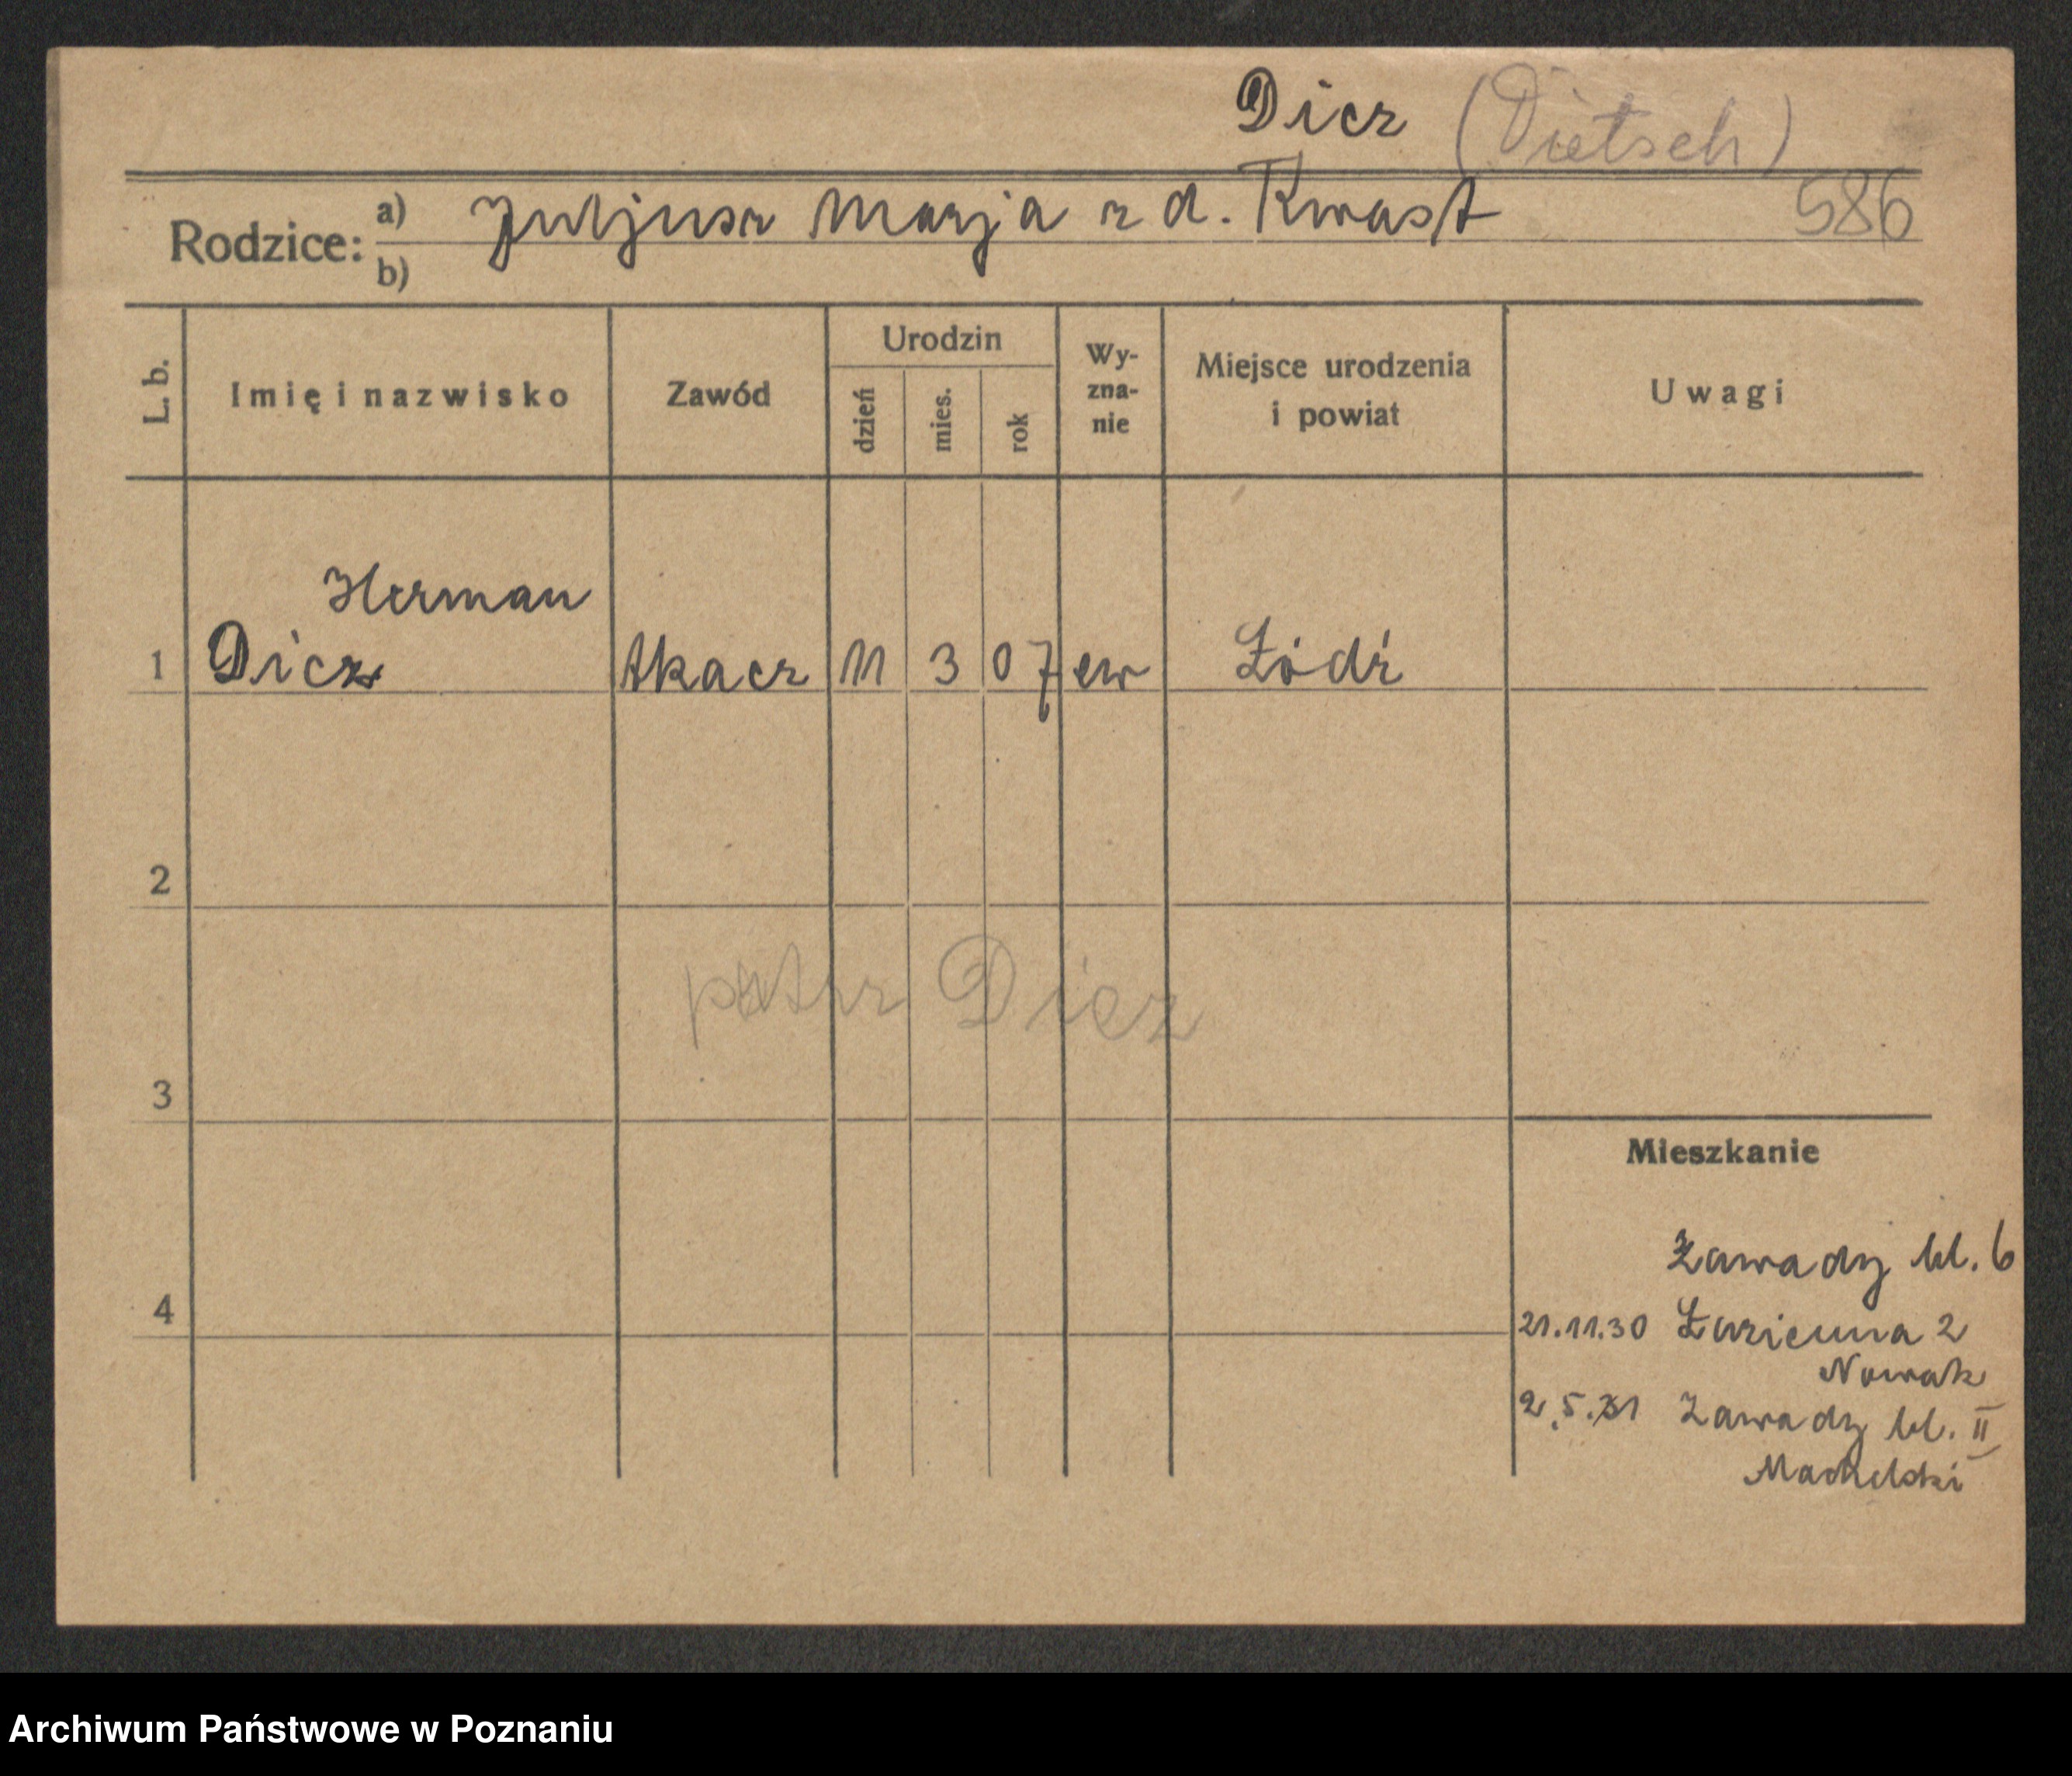 Dicz (Dietsch)
Rodzice: a) Juljusz Marja z d. Kwast 586
b)
L. b. Imię i nazwisko Zawód Urodzin dzień mies. rok Wy-zna-nie Miejsce urodzenia i powiat Uwagi
Herman
1 Dicz tkacz 11 3 07 ew Łódź
2
patrz Diez
3
Mieszkanie
Zawady bl. 6
4
21.11.30 Łazienna 2
Nowak
2.5.31 Zawady bl. II
Machelski
Archiwum Państwowe w Poznaniu